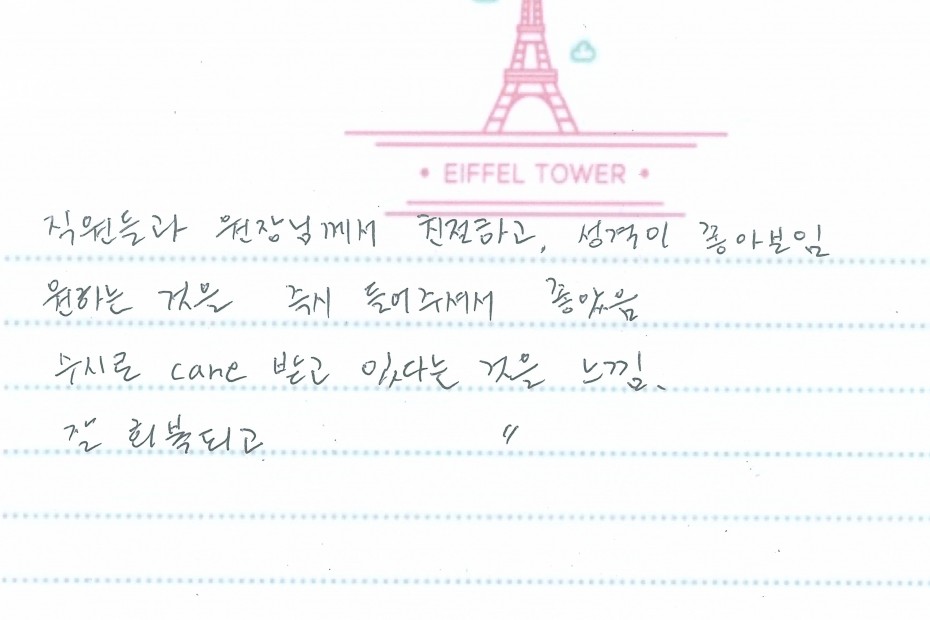 • EIFFEL TOWER •
직원들과 원장님께서 친절하고, 성격이 좋아보임
원하는 것을 즉시 들어주셔서 좋았음
수시로 care 받고 있다는 것을 느낌.
잘 회복되고 〃